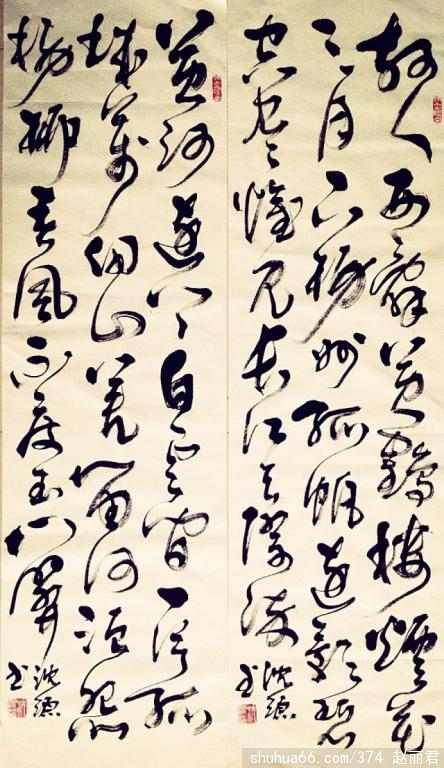 故人西辞黄鶴楼煙花
三月下揚州孤帆遠影碧
空尽惟见长江天际流
沈
书
黄河遠上白云间一片孤
城萬仞山羌笛何须怨
楊柳春风不度玉门關
沈
书
shuhua66.com/374 赵丽君